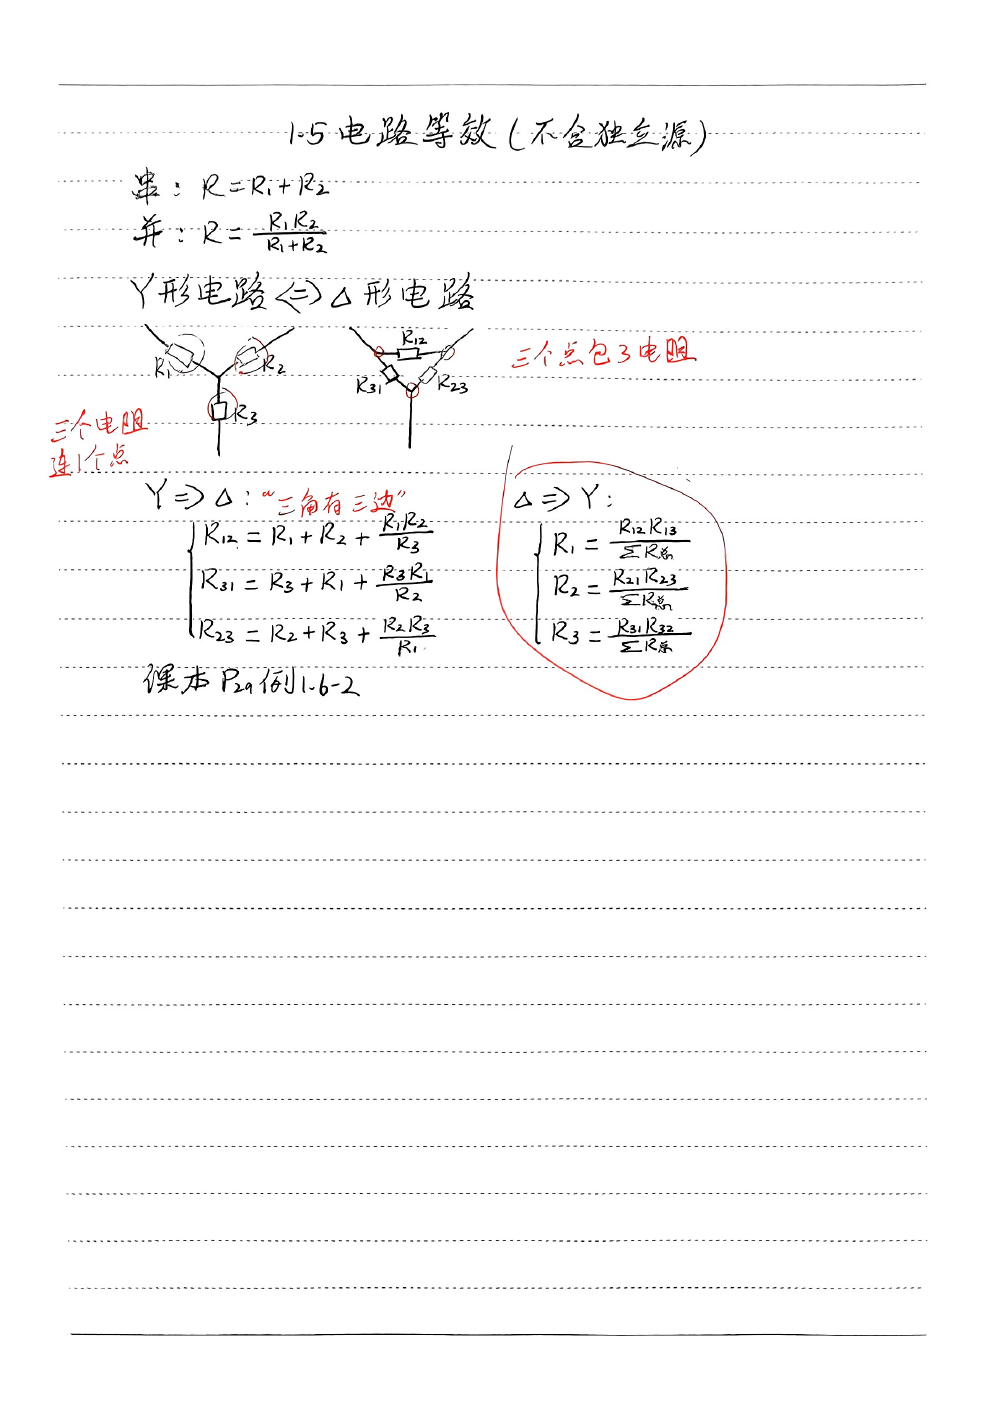 1.5 电路等效(不含独立源)
串: R=R₁+R₂
并: R=R₁R₂/(R₁+R₂)
Y形电路<=>△形电路
R₁ R₂ R₃
R₁₂ R₃₁ R₂₃
三个点包3电阻
三个电阻
连1个点
Y=>△: “三角有三边”
R₁₂=R₁+R₂+R₁R₂/R₃
R₃₁=R₃+R₁+R₃R₁/R₂
R₂₃=R₂+R₃+R₂R₃/R₁
△=>Y:
R₁=R₁₂R₁₃/∑R总
R₂=R₂₁R₂₃/∑R总
R₃=R₃₁R₃₂/∑R总
课本P₂₉例1.6-2